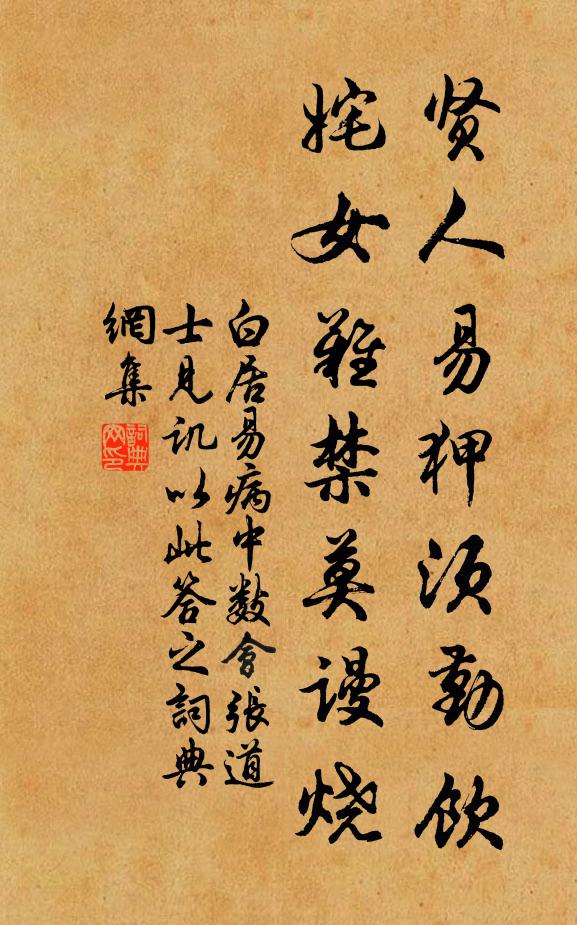 贤人易狎须勤饮
姹女难禁莫谩烧
白居易病中数会張道
士見讥以此答之詞典
網集
詞典網印